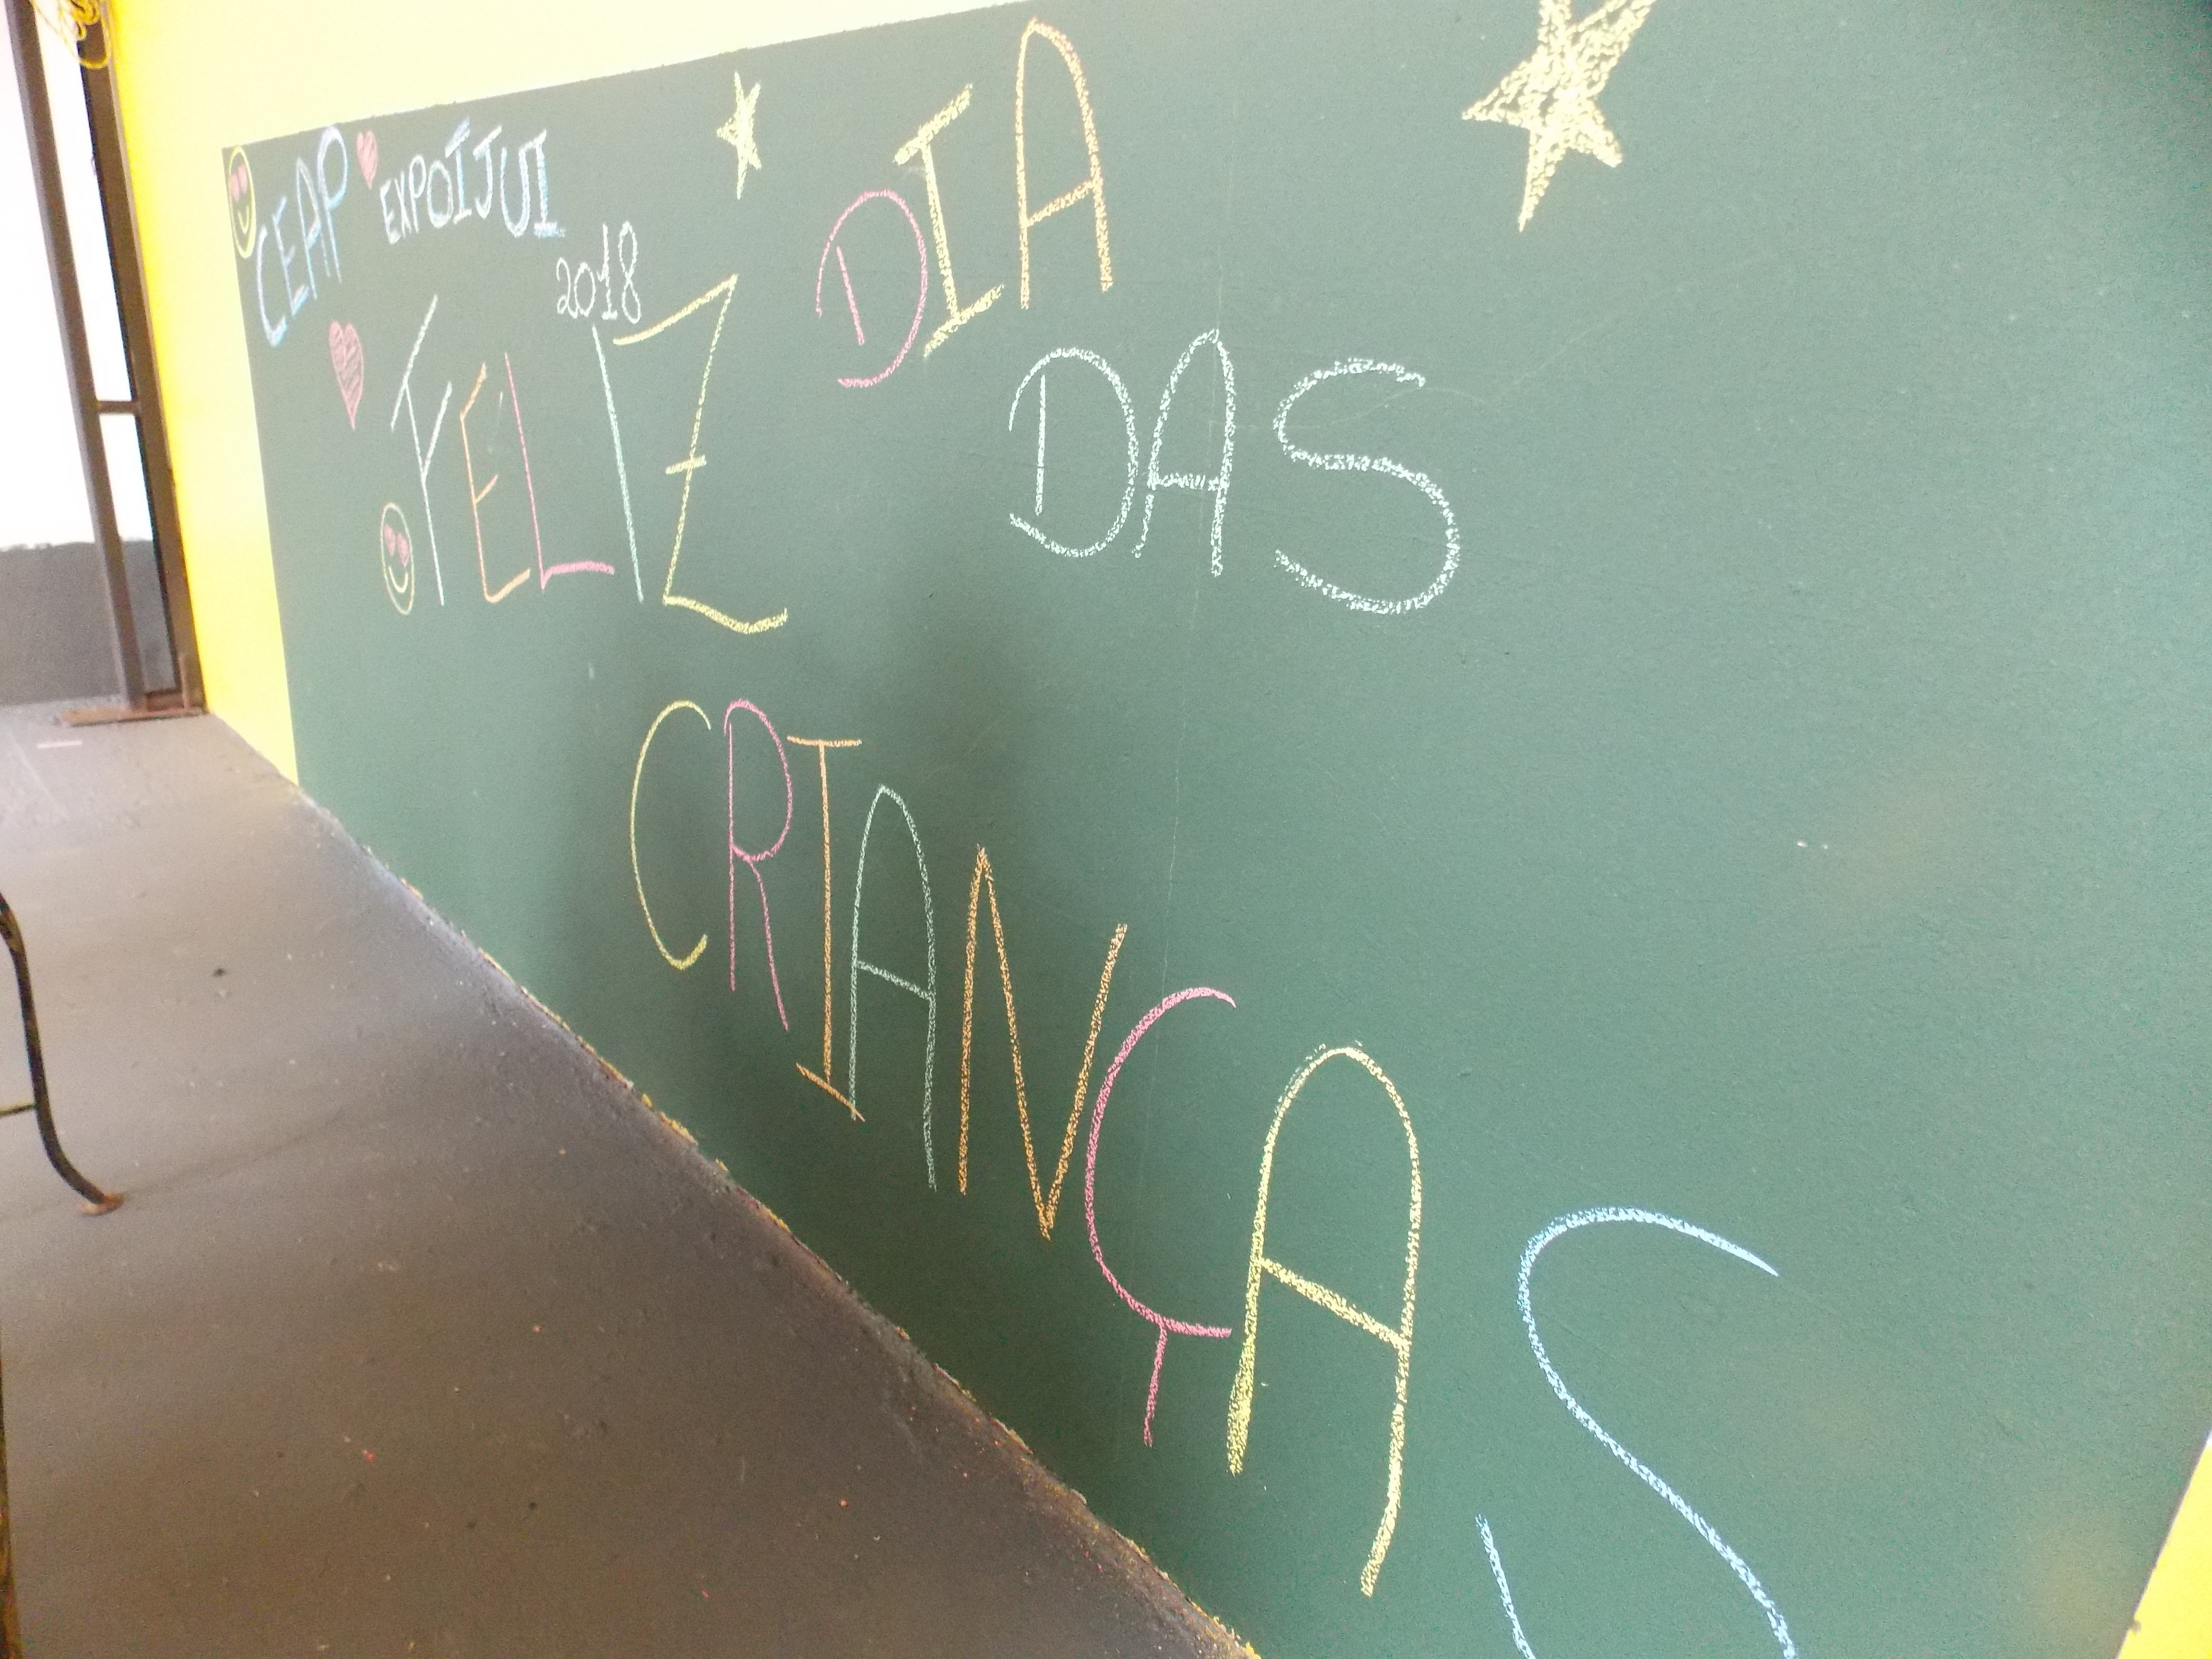 CEAP EXPOIJUI
2018
FELIZ DIA
DAS
CRIANÇAS